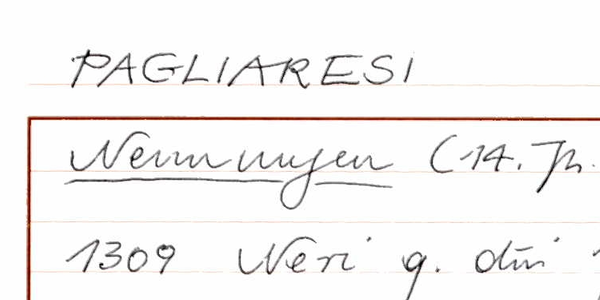 PAGLIARESI
Nennungen (14. Jh.
1309 Neri q. dni